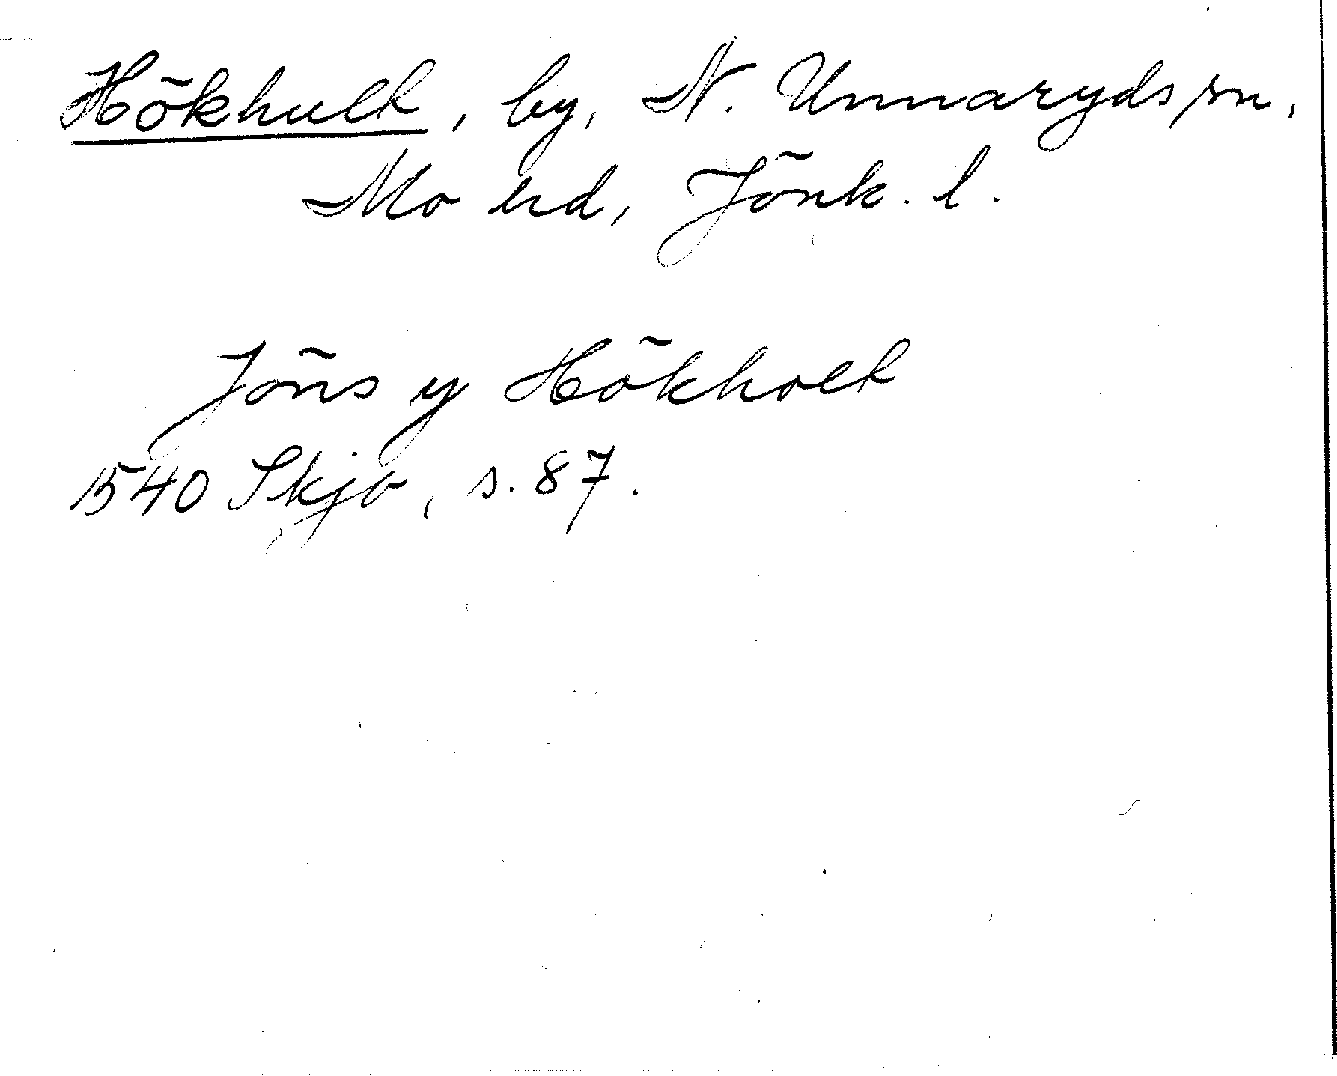 Hökhult, by, N. Unnaryds sn,
Mo hd, Jönk. l.
Jöns y Hökholt
1540 Skjb, s. 87.